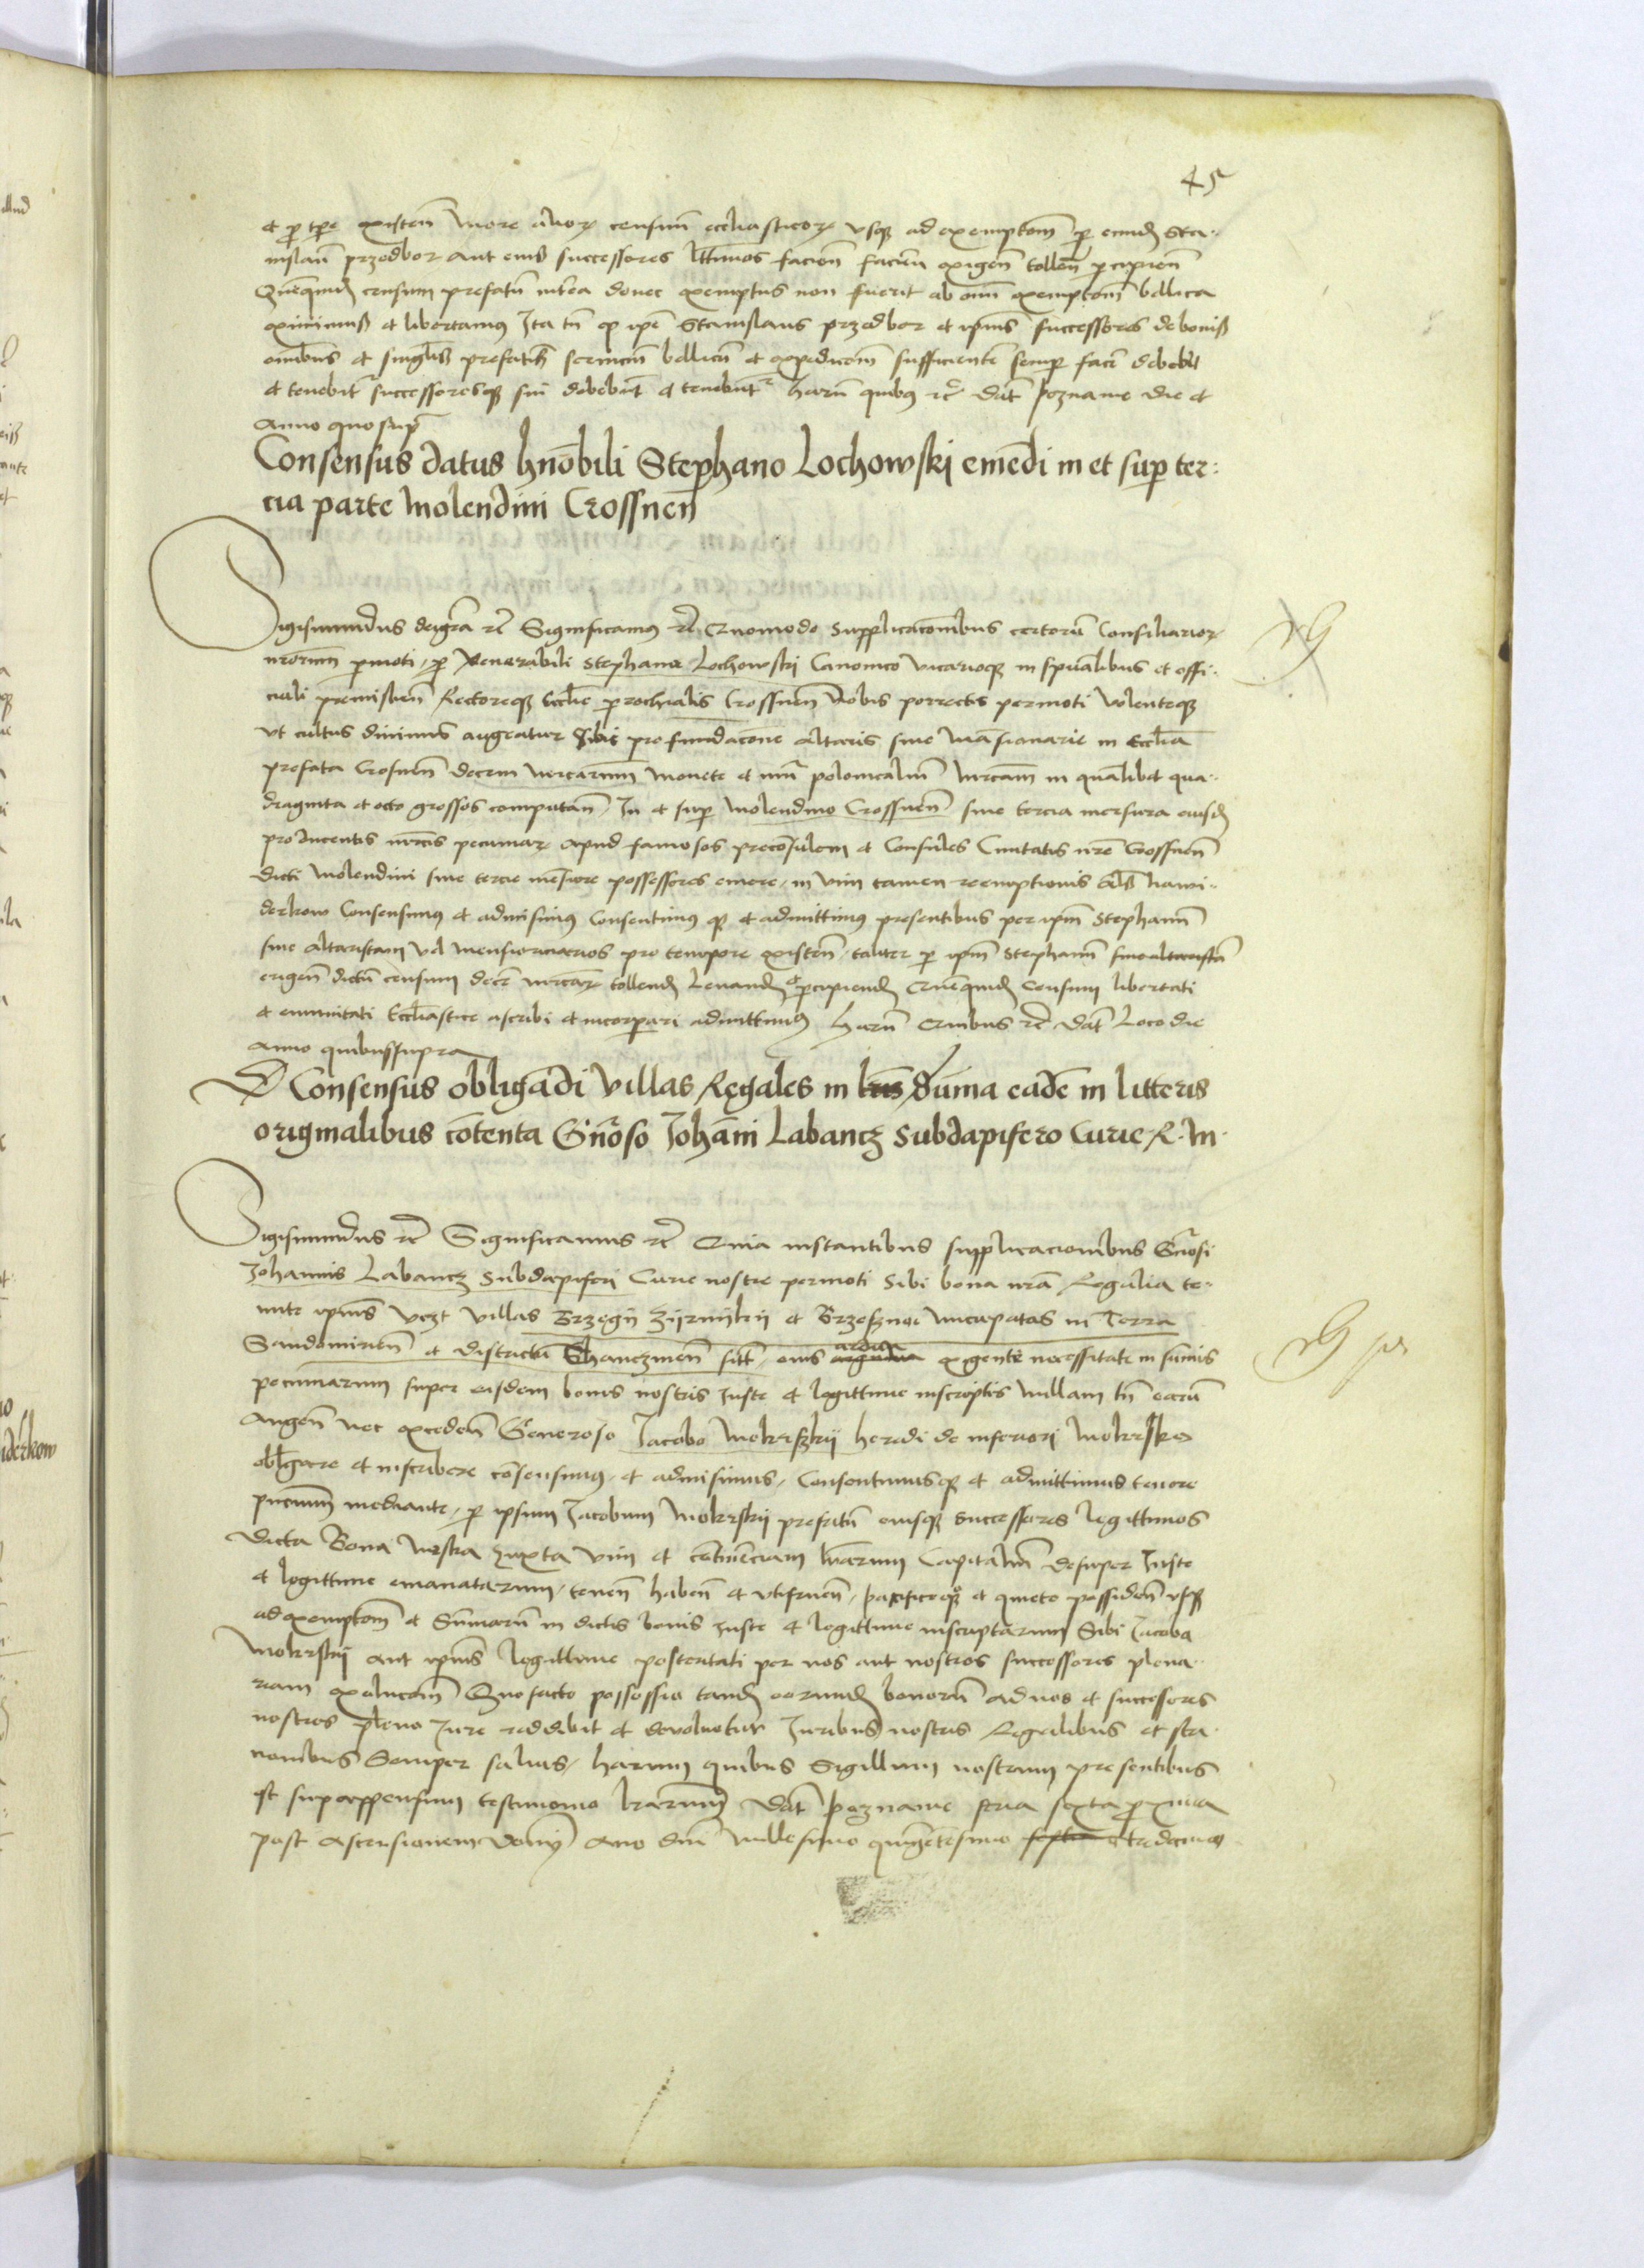 45
et pro tpe existen more alior censum eccliasticor usq ad exemptom per eundem Sta-
nislaū przedbor aut eius successores lttimos facien faciem exigen tollen percipien
Quequid censum prefatū interea donec exemptus non fuerit ab omi exemptom bellica
eximimus et libertamus Ita tn q ipe Stanislaus przedbor et ipius successores de bonis
omibus et singlis prefatis servicium bellicū et expedicom sufficientē semper facē debebit
et tenebit successoresq sui debebūt et tenebūtr harū quibus etc Dat poznanie die et
Anno quo supra
Consensus datus hnobili Stephano Lochowski emēdi in et sup ter:
cia parte molendini Crossnen
Sigismundus dei gra etc Significamus etc Quomodo supplicacombus certorū Consiliarior
nrorum permoti per Venerabili Stephano Lochowski Canonico vicarioq in spūalibus et offi-
ciali premislien Rectoreq Ecclie parochialis Crossnen Nobis porrectis permoti Volentesq
ut cultus divinus augeatur Sibi pro fundacione altaris sive mansionarie in Ecclia
prefata Crosnen decem mercarum monete et nūi polonicaliū mrcam in qualibet qua-
draginta et octo grossos computan In et sup molendino Crossnen sive tercia mensura eiusd
pro ducentis mrcis pecuniar apud famosos preconsulem et Consules Civitatis nre Crossnen
dicti molendini sive tercie mensure possessores emere in vim tamen reempcionis als hawi-
derkow Consensimus et admisimus Consentimus q et admittimus presentibus per ipm Stephanū
sive altaristam vel mensionarios pro tempore existen taliter per ipm Stephanū sive altaristā
erigen dictū censum decē mrcar tollend levand percipiend Quequid censum libertati
et emunitati Ecclīastice ascribi et incorporari admittimus harū Quibus etc Dat Loco die
anno quibus supra
Consensus obligandi villas Regales in lris suma eadē in litteris
originalibus cōtenta Gnroso Johāni Labancz subdapifero Curie R. M.
Sigismundus etc Significamus etc Quia instantibus supplicacionibus Gnrosi
Johannis Labancz Subdapiferi Curie nostre permoti Sibi bona nrā Regalia te-
nute ipius videlt Villas Brzegii Zijrnijkij et Brzesznoe nucupatas in Terra
Sandomirien et districtū Shanczmen sitt eius argidua ardua exigentē necessitate in sumis
pecuniarum super eisdem bonis nostris Juste et legittime inscriptis nullam tn eccū
Augen nec exceden Generoso Jacobo Mokrszkij heredi de inferiori Mokrsko
obligare et inscribere cōsensimus et admisimus Consentimusq et admittimus tenore
pncium mediante per ipsum Jacobum Mokrskij prefatū eiusq successores legittimos
dicta Bona nostra Juxta vim et cōtinenciam lrārum Capitaliū desuper Juste
et legittime emanatarum tenen haben et utifruen pacificeq et quiete possiden usq
ad exemptom et Sumarū in dictis bonis Juste et legittime inscriptarum Sibi Jacobo
Mokrskij aut ipius legittime posteritati per nos aut nostros successores plena-
riam exolucom Quo facto possessio tandē eorumdē bonorū ad nos et successores
nostros pleno Jure reddibit et devoluetur Juribus nostris Regalibus et sta-
tionibus Semper salvis harum quibus Sigillum nostrum presentibus
est supappensum testimonio lrārum Dat poznanie feria sexta proxima
post Ascensionem Domi Ano dni millesimo quingētesimo tredecimo